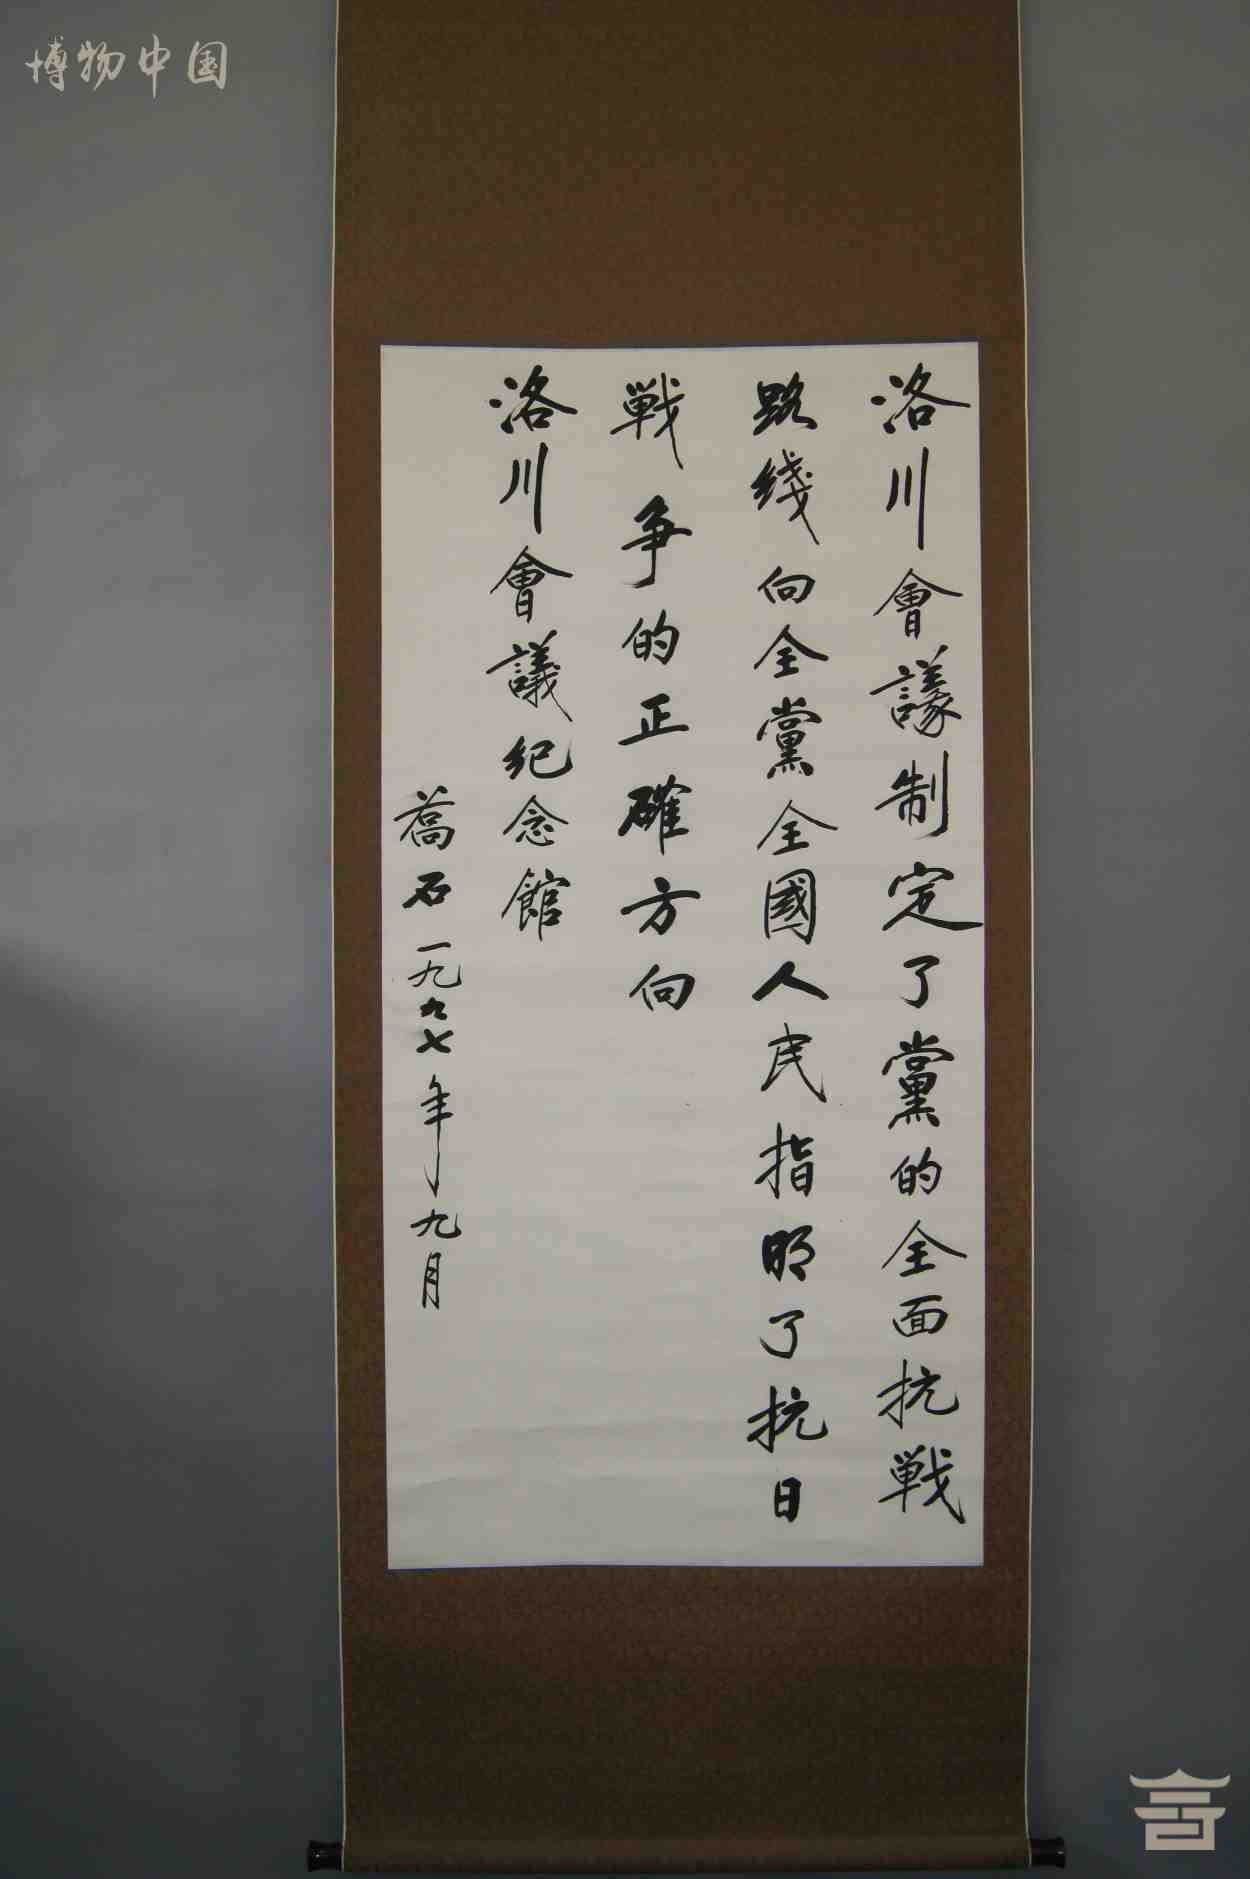 博物中国
洛川會議制定了黨的全面抗戰
路綫向全黨全國人民指明了抗日
戰争的正確方向
洛川會議纪念館
喬石一九九七年九月